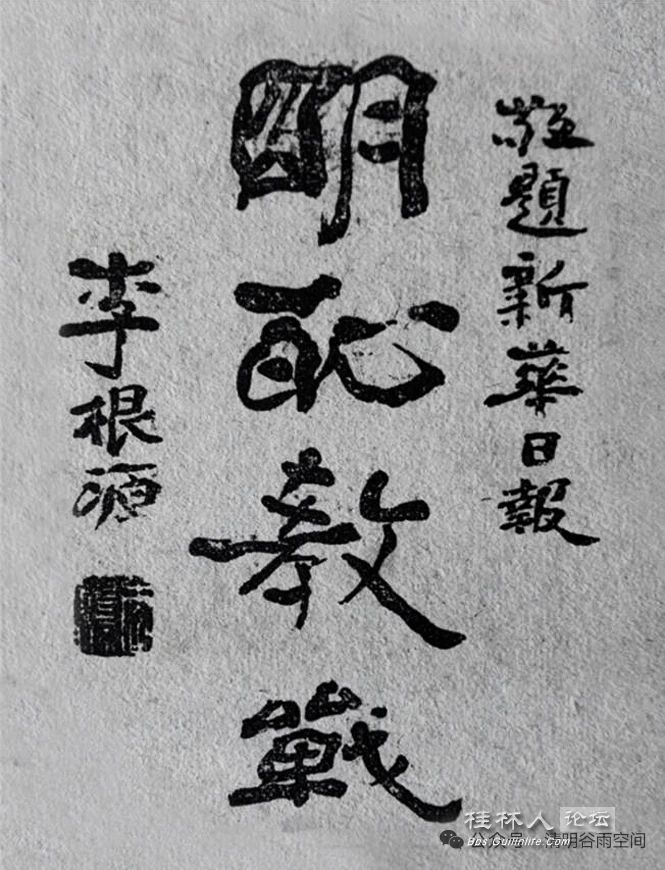 敬題新華日報
明恥教戰
李根源
桂林人论坛
Bbs.Guilinlife.Com
公众号·清明谷雨空间